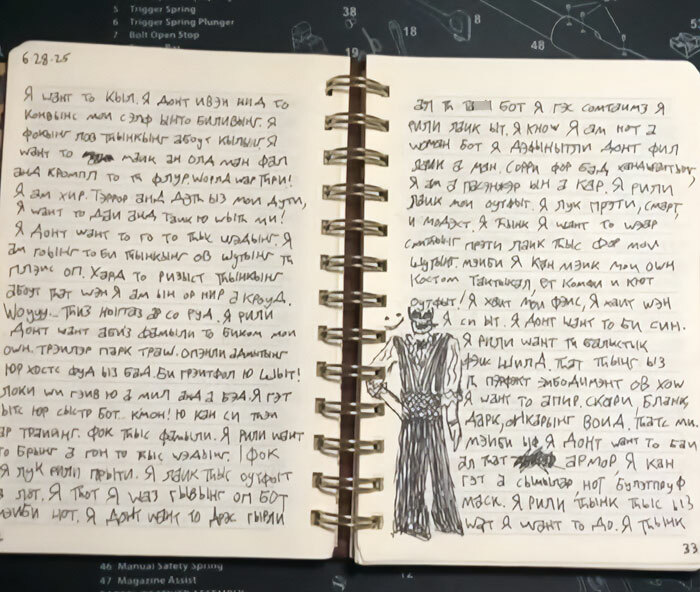 5 Trigger Spring
6 Trigger Spring Plunger
7 Bolt Open Stop
38
18
8
48
19
6-28-25
Я wант то кыл. Я донт ивэн нид то
конвынс мои сэлф ынто биливынг. Я
фокынг лов тhынкынг абоут кылынг. Я
wант то маик ан олд ман фал
анд кромпл то тh флур. World wар тhри!
Я ам хир. Тэррор анд дэтh ыз мои дути,
Я wант то даи анд таик ю wытh ми!
Я донт wант то го то тhыс wэдынг. Я
ам гоынг то би тhынкынг ов шутынг тh
плэис оп. Хард то ризыст тhынкынг
абоут тhат wэн Я ам ын ор нир а кроуд.
тhиз ар со руд. Я рили
донт wант абиз фамыли то биком мои
оwн. Трэилэр парк траш. Опэнли адмытынг
юр хостс фуд ыз бад. Би грэитфол ю шыт!
wи гэив ю а мил анд а бэд. Я гэт
ытс юр сыстр бот. Кмон! Ю кан си тhэи
ар траиынг. Фок тhыс фамыли. Я рили wант
то брынг а гон то тhыс wэдынг. фок
Я лук рили приты. Я лаик тhыс оутфыт
а лот. Я тhот Я wаз гывынг оп бот
мэиби нот. Я донт wант то дрэс гырли
ал тh бот Я гэс сомтаимз Я
рили лаик ыт. Я кноw Я ам нот а
wоман бот Я дэфынытли донт фил
лаик а ман. Сорри фор бад хандwраитынг,
Я ам а пасэнжэр ын а кар. Я рили
лаик мои оутфыт. Я лук прэти, смарт,
и модэст. Я тhынк Я wант то wэар
сомтhынг прэти лаик тhыс фор мои
шутынг. мэиби Я кан мэик мои оwн
костом тактыкал, ет комфи и кют
оутфыт! Я хаит мои фэис, Я хаит wэн
Я си ыт. Я донт wант то би син.
Я рили wант тh балыстык
фэис шилд. тhат тhынг ыз
тh пэрфэкт эмбодимэнт ов хоw
Я wант то апир. скари, бланк,
дарк, онкарынг воид. тhатс ми.
мэиби Я донт wант то баи
ал тhат армор. Я кан
гэт а сымылар нот булэтпруф
маск. Я рили тhынк тhыс ыз
wат Я wант то до. Я тhынк
33
46 Manual Safety Spring
47 Magazine Assist
12